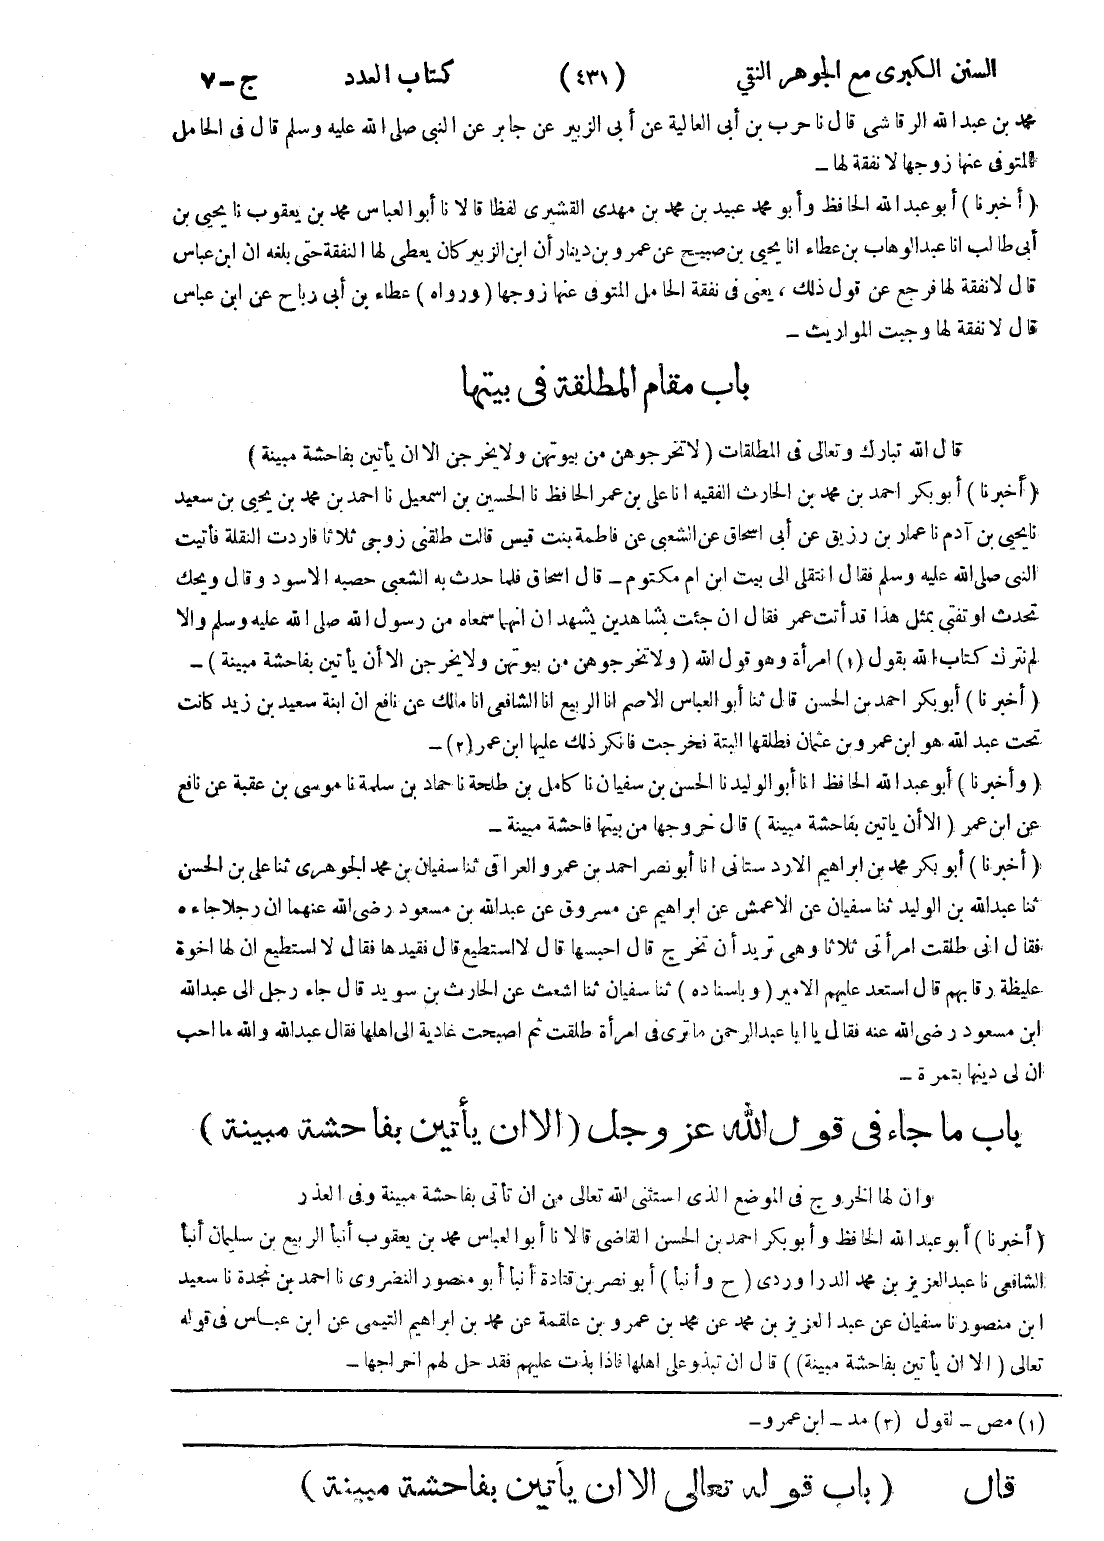 السنن الكبرى مع الجوهر النقي (٤٣١) كتاب العدد ج-٧
محمد بن عبد الله الرقاشى قال نا حرب بن أبى العالية عن أبى الزبير عن جابر عن النبى صلى الله عليه وسلم قال فى الحامل
المتوفى عنها زوجها لا نفقة لها -
(أخبرنا) أبو عبد الله الحافظ وأبو محمد عبيد بن محمد بن مهدى القشيرى لفظا قالا نا أبو العباس محمد بن يعقوب نا يحيى بن
أبى طالب انا عبد الوهاب بن عطاء انا يحيى بن صبيح عن عمرو بن دينار أن ابن الزبير كان يعطى لها النفقة حتى بلغه ان ابن عباس
قال لا نفقة لها فرجع عن قول ذلك ، يعنى فى نفقة الحامل المتوفى عنها زوجها (ورواه) عطاء بن أبى رباح عن ابن عباس
قال لا نفقة لها وجبت المواريث -
باب مقام المطلقة فى بيتها
قال الله تبارك وتعالى فى المطلقات (لا تخرجوهن من بيوتهن ولا يخرجن الا ان يأتين بفاحشة مبينة)
(أخبرنا) أبو بكر احمد بن محمد بن الحارث الفقيه انا على بن عمر الحافظ نا الحسين بن اسمعيل نا احمد بن محمد بن يحيى بن سعيد
نا يحيى بن آدم نا عمار بن رزيق عن أبى اسحاق عن الشعبى عن فاطمة بنت قيس قالت طلقنى زوجى ثلاثا فاردت النقلة فأتيت
النبى صلى الله عليه وسلم فقال انتقلى الى بيت ابن ام مكتوم - قال اسحاق فلما حدث به الشعبى حصبه الاسود وقال ويحك
تحدث او تفتى بمثل هذا قد أتت عمر فقال ان جئت بشاهدين يشهد ان انهما سمعاه من رسول الله صلى الله عليه وسلم والا
لم نترك كتاب الله بقول (١) امرأة وهو قول الله (ولا تخرجوهن من بيوتهن ولا يخرجن الا أن يأتين بفاحشة مبينة) -
(أخبرنا) أبو بكر احمد بن الحسن قال ثنا أبو العباس الاصم انا الربيع انا الشافعى انا مالك عن نافع ان ابنة سعيد بن زيد كانت
تحت عبد الله هو ابن عمرو بن عثمان فطلقها البتة فخرجت فانكر ذلك عليها ابن عمر (٢) -
(وأخبرنا) أبو عبد الله الحافظ انا أبو الوليد نا الحسن بن سفيان نا كامل بن طلحة نا حماد بن سلمة نا موسى بن عقبة عن نافع
عن ابن عمر (الا أن ياتين بفاحشة مبينة) قال خروجها من بيتها فاحشة مبينة -
(أخبرنا) أبو بكر محمد بن ابراهيم الاردستانى انا أبو نصر احمد بن عمرو العراقى ثنا سفيان بن محمد الجوهرى ثنا على بن الحسن
ثنا عبد الله بن الوليد ثنا سفيان عن الاعمش عن ابراهيم عن مسروق عن عبد الله بن مسعود رضى الله عنهما ان رجلا جاءه
فقال انى طلقت امرأتى ثلاثا وهى تريد أن تخرج قال احبسها قال لا استطيع قال فقيدها فقال لا استطيع ان لها اخوة
غليظة رقابهم قال استعد عليهم الامير (وباسناده) ثنا سفيان ثنا اشعث عن الحارث بن سويد قال جاء رجل الى عبد الله
ابن مسعود رضى الله عنه فقال يا ابا عبد الرحمن ما ترى فى امرأة طلقت ثم اصبحت غادية الى اهلها فقال عبد الله والله ما احب
ان لى دينها بتمرة -
باب ما جاء فى قول الله عز وجل (الا ان يأتين بفاحشة مبينة)
وان لها الخروج فى الموضع الذى استثنى الله تعالى من ان تأتى بفاحشة مبينة وفى العذر
(أخبرنا) أبو عبد الله الحافظ وأبو بكر احمد بن الحسن القاضى قالا نا أبو العباس محمد بن يعقوب أنبأ الربيع بن سليمان أنبأ
الشافعى نا عبد العزيز بن محمد الدراوردى (ح وأنبأ) أبو نصر بن قتادة أنبأ أبو منصور النضروى نا احمد بن نجدة نا سعيد
ابن منصور نا سفيان عن عبد العزيز بن محمد عن محمد بن عمرو بن علقمة عن محمد بن ابراهيم التيمى عن ابن عباس فى قوله
تعالى (الا ان يأتين بفاحشة مبينة)) قال ان تبذو على اهلها فاذا بذت عليهم فقد حل لهم اخراجها -
(١) مص - لقول (٢) مد - ابن عمرو -
قال (باب قوله تعالى الا ان يأتين بفاحشة مبينة)